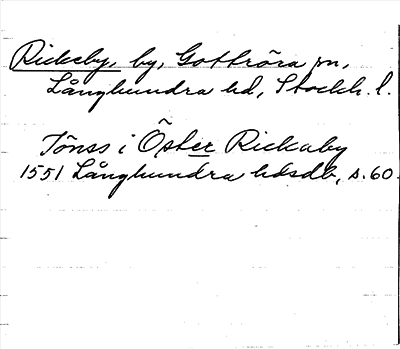 Rickeby, by, Gottröra sn,
Långhundra hd, Stockh. l.
Tönss i Öster Rickaby
1551 Långhundra hdsdb, s. 60.